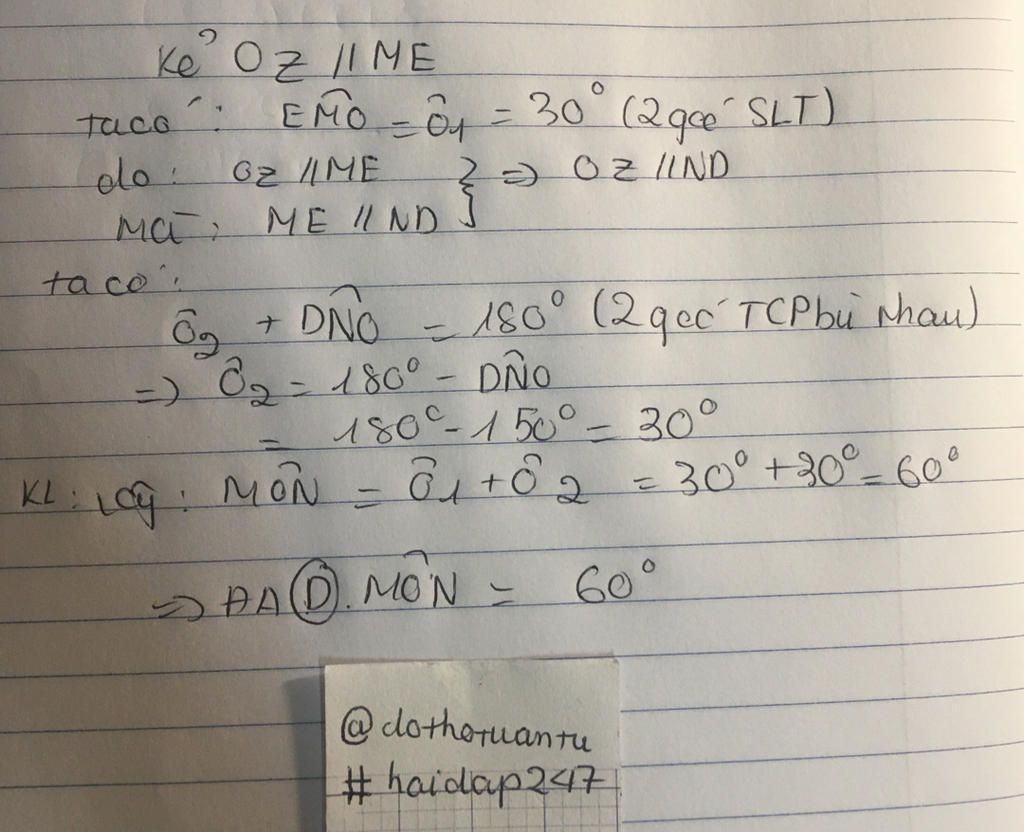 Kẻ OZ // ME
ta có: EM̂O = Ô1 = 30° (2 góc SLT)
do: OZ // ME } => OZ // ND
Mà: ME // ND
ta có:
Ô2 + DN̂O = 180° (2 góc TCP bù nhau)
=> Ô2 = 180° - DN̂O
= 180° - 150° = 30°
KL: Vậy: MÔN = Ô1 + Ô2 = 30° + 30° = 60°
=> ĐA D. MÔN = 60°
@dothotuantu
# haidap247